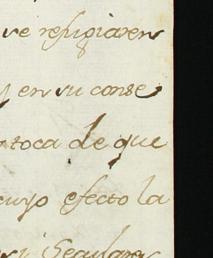 ve refugiaren
y en su conse
toca de que
cuyo efecto la
Secular